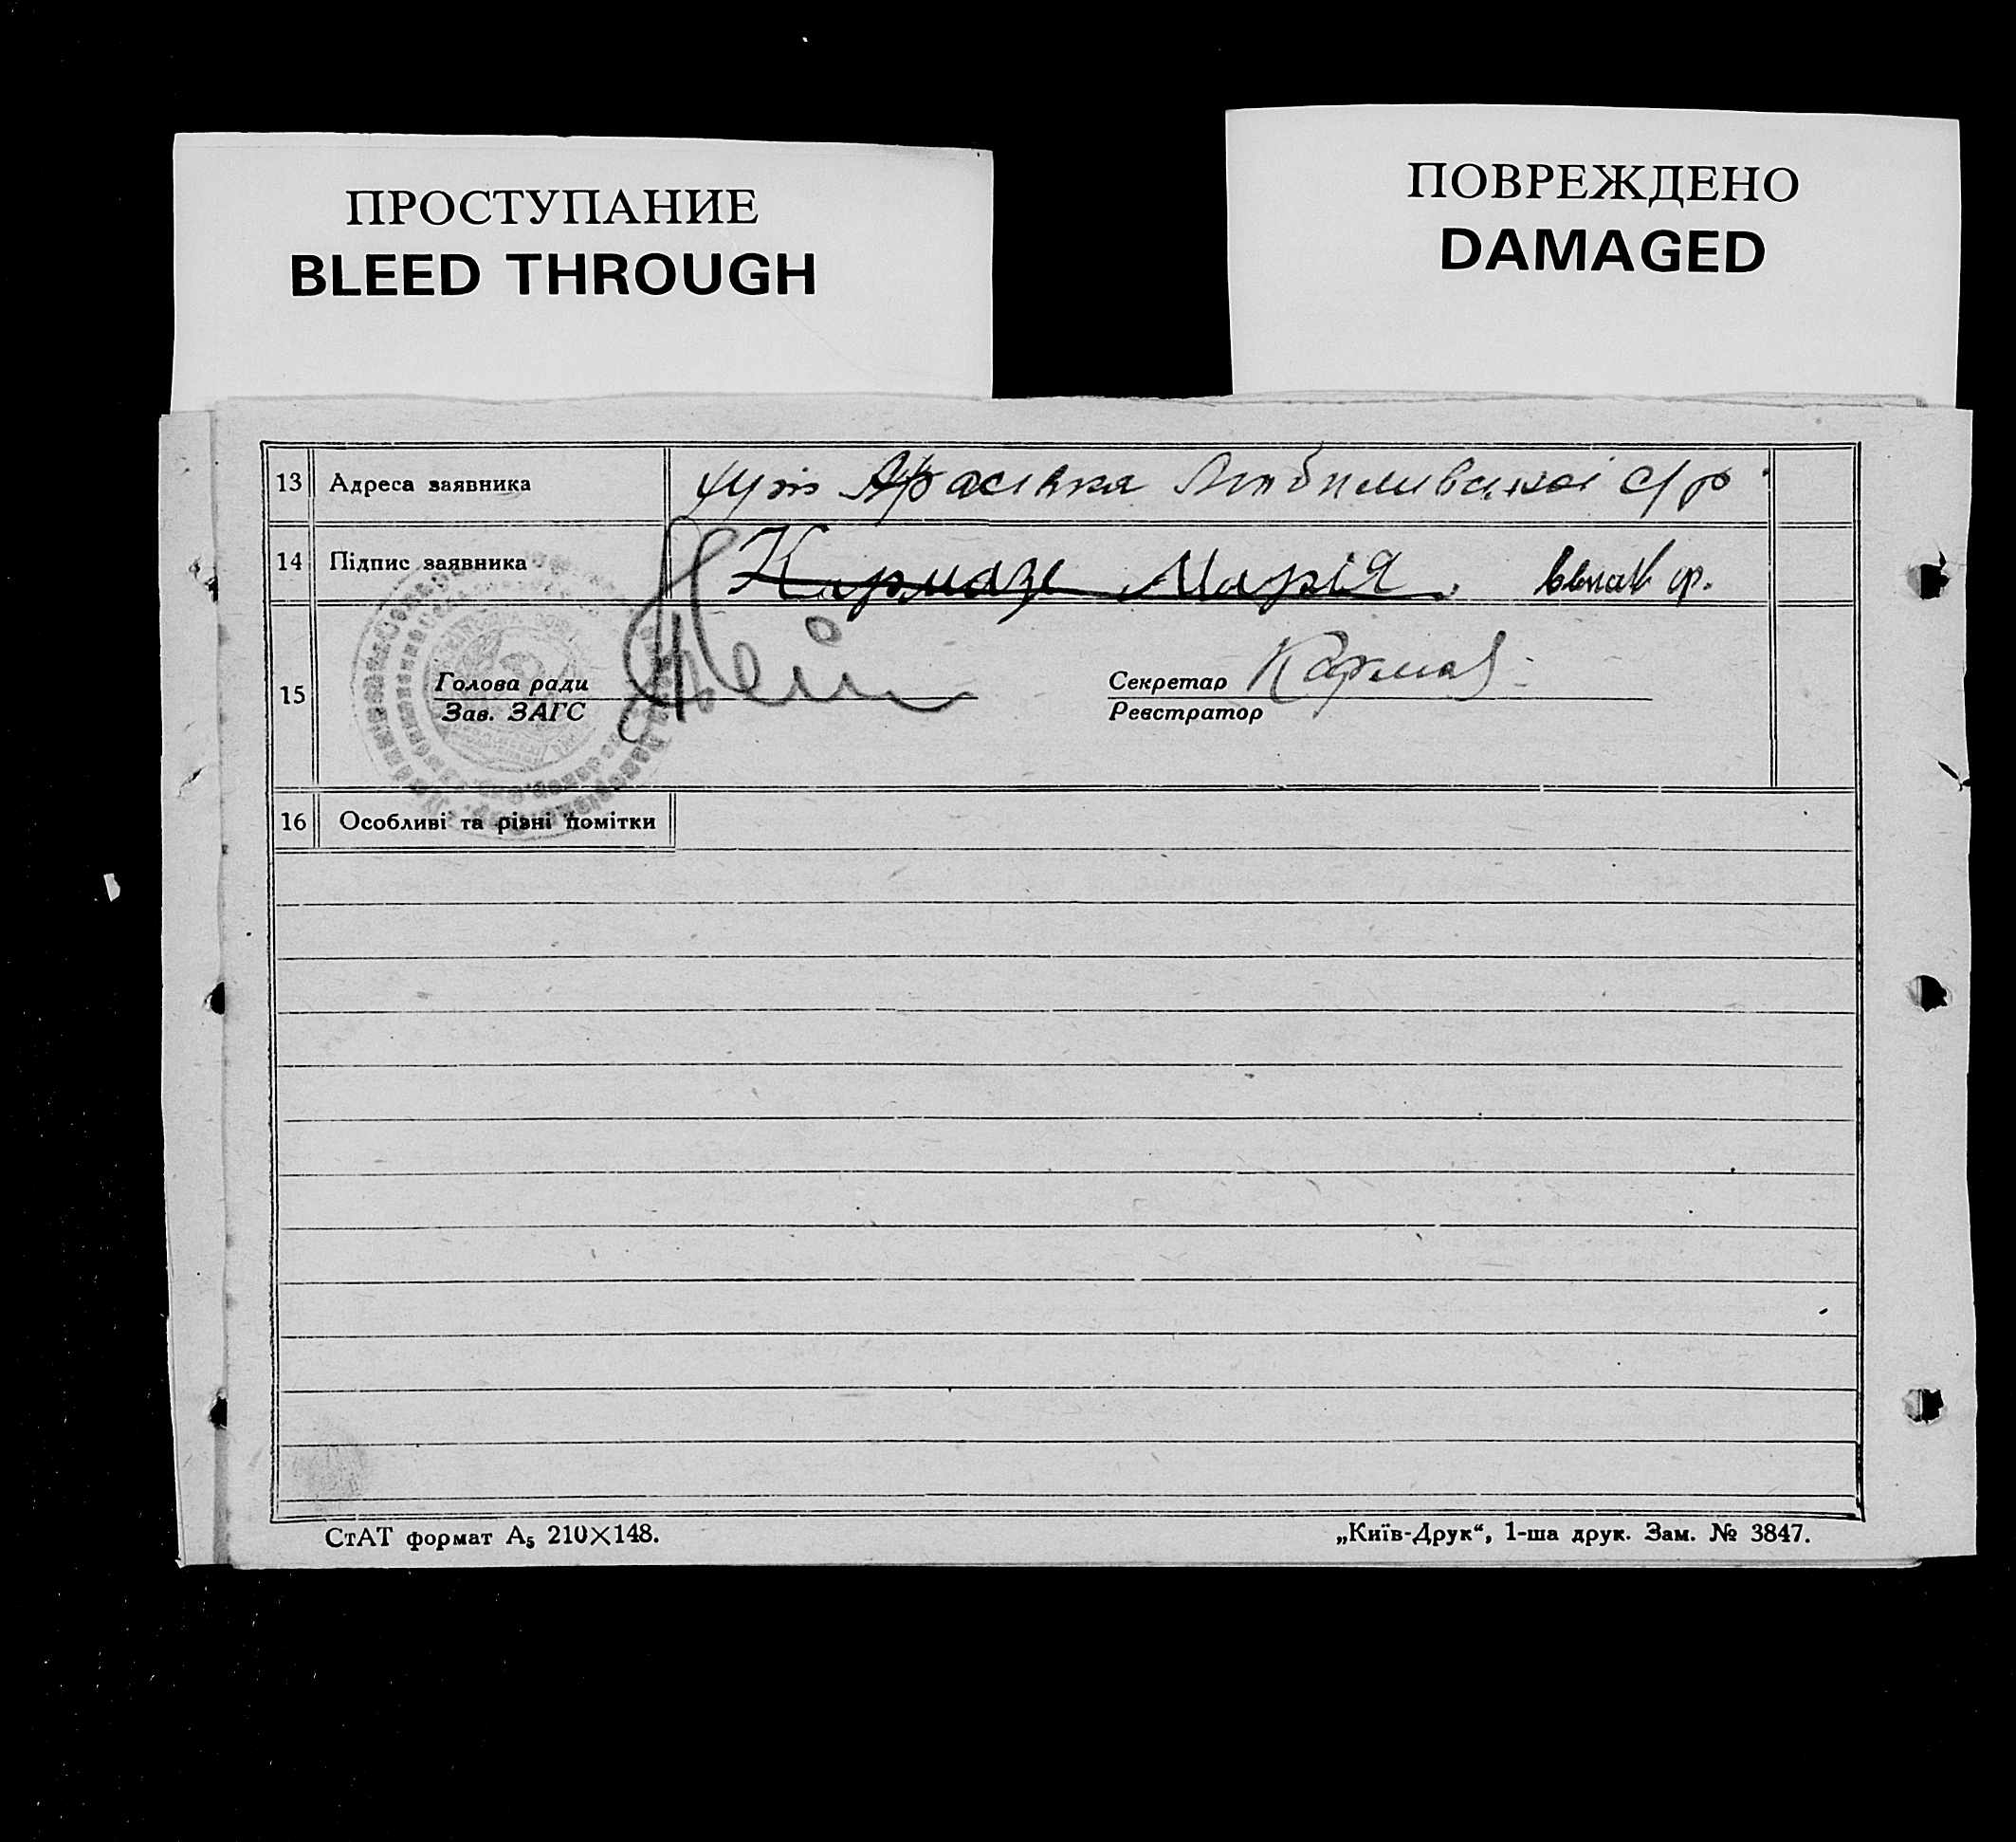 ПРОСТУПАНИЕ
BLEED THROUGH
ПОВРЕЖДЕНО
DAMAGED
13 Адреса заявника
14 Підпис заявника Кармазе Марія.
15 Голова ради
Зав. ЗАГС
Секретар Кармаз
Реєстратор
16 Особливі та різні помітки
СтАТ формат А₅ 210×148.
„Київ-Друк“, 1-ша друк. Зам. № 3847.